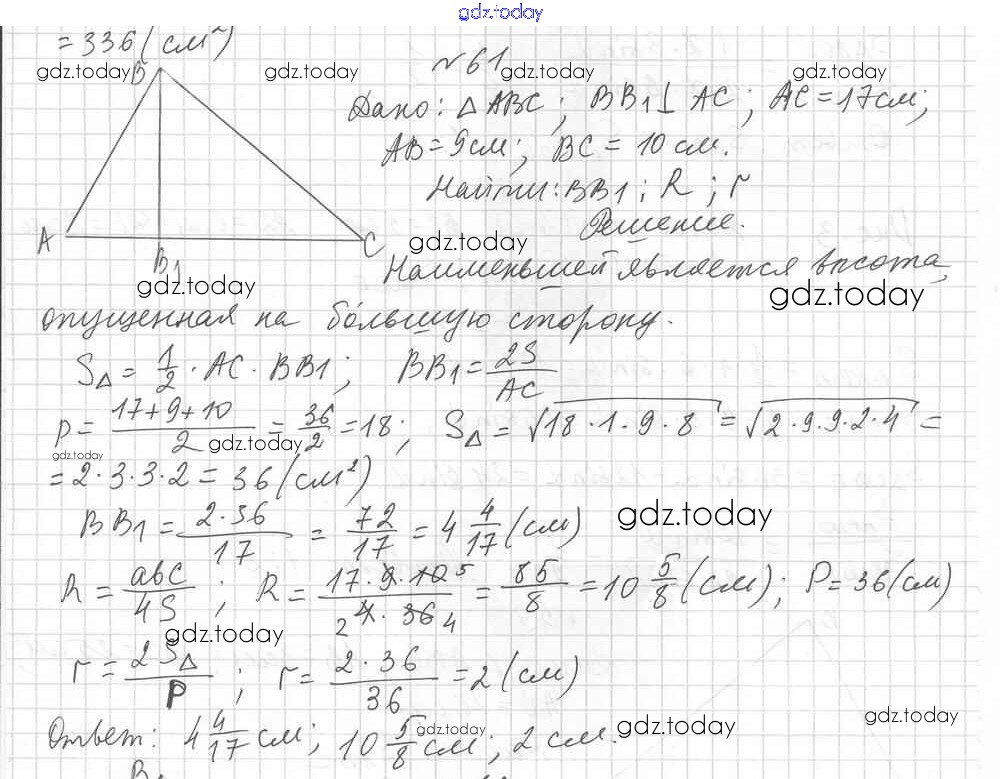 gdz.today
= 336 (см²)
№ 61
gdz.today gdz.today gdz.today gdz.today
B
Дано: △ ABC; BB₁ ⊥ AC; AC = 17 см;
AB = 9 см; BC = 10 см.
Найти: BB₁; R; r
Решение.
A B₁ C
gdz.today
Наименьшей является высота,
gdz.today gdz.today
опущенная на бо́льшую сторону.
S△ = 1/2 · AC · BB₁; BB₁ = 2S/AC
p = (17+9+10)/2 = 36/2 = 18; S△ = √(18 · 1 · 9 · 8) = √(2 · 9 · 9 · 2 · 4) =
gdz.today gdz.today
= 2 · 3 · 3 · 2 = 36 (см²)
BB₁ = (2 · 36)/17 = 72/17 = 4 4/17 (см)
gdz.today
R = abc/4S; R = (17 · 9 · 10 5)/(2 4 · 36 4) = 85/8 = 10 5/8 (см); P = 36 (см)
gdz.today
r = 2S△/P; r = (2 · 36)/36 = 2 (см)
Ответ: 4 4/17 см; 10 5/8 см; 2 см.
gdz.today gdz.today gdz.today
B